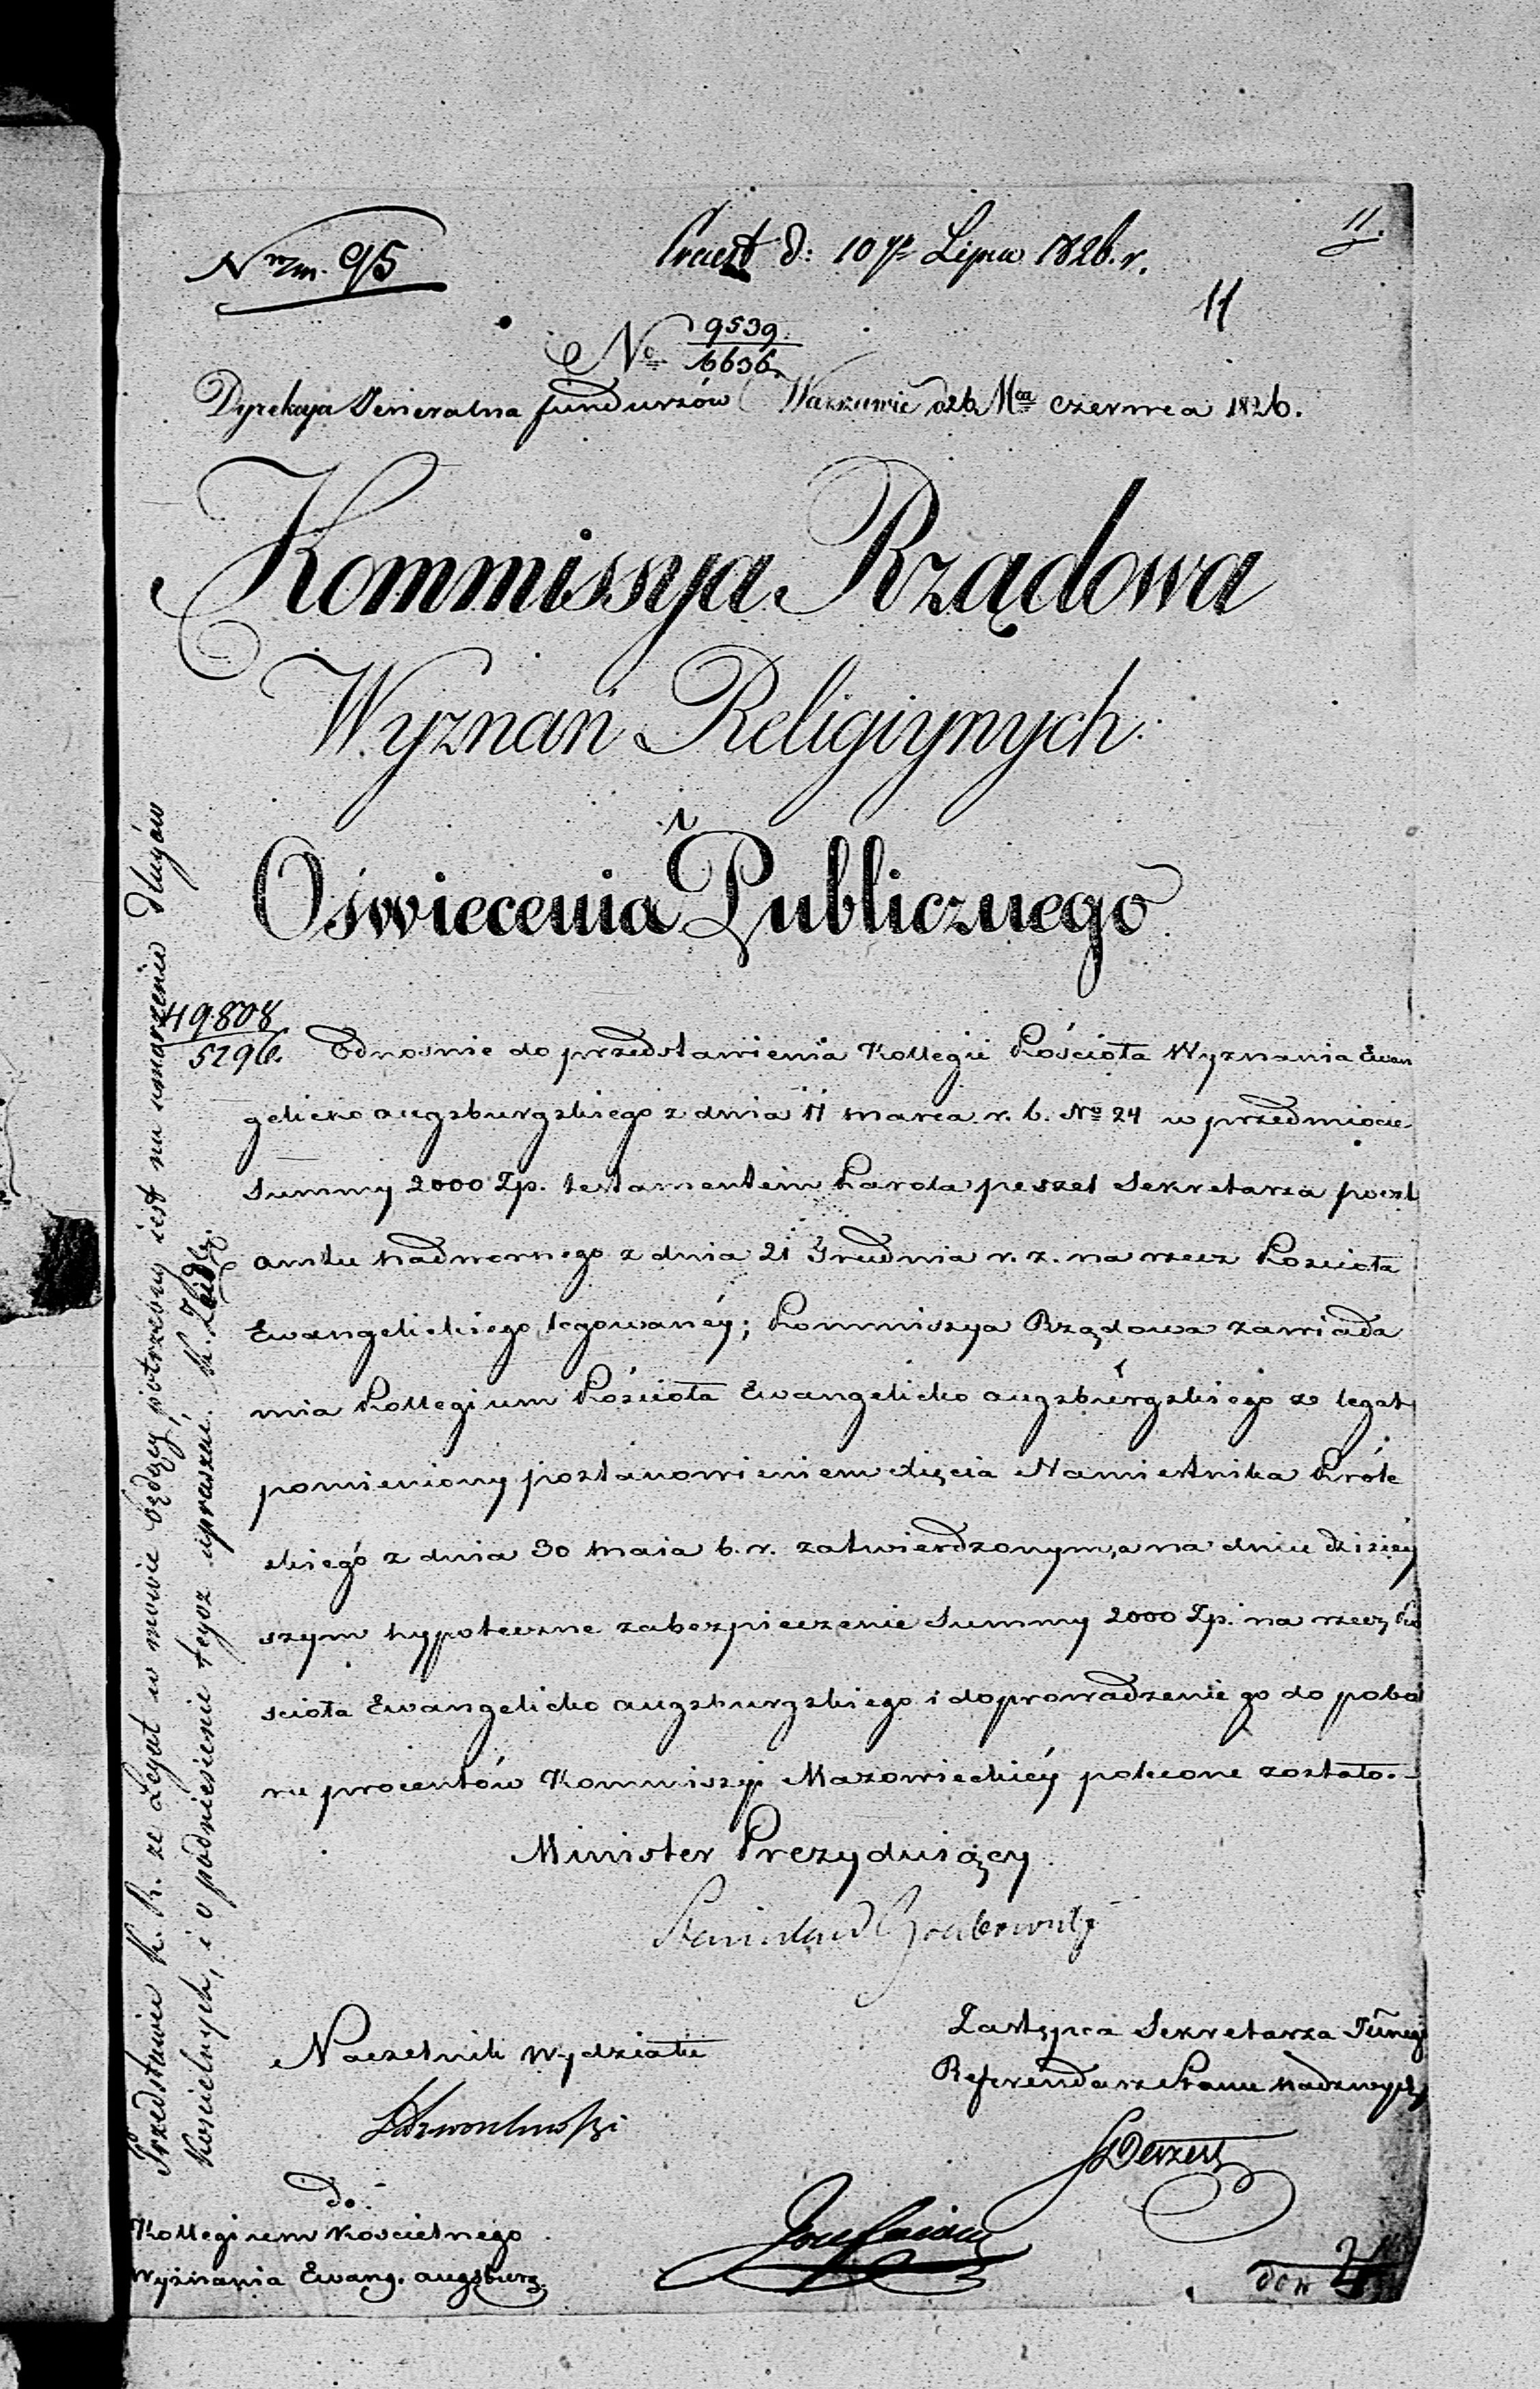 11.
Praest d: 10 go Lipca 1826. r.
11
No 9539.
6636
Dyrekcya Jeneralna funduszów Warszawie d 26 Mca czerwca 1826.
Kommissya Rządowa
Wyznań Religiynych
i
Oświecenia Publicznego
49.808
5296.
Odnośnie do przedstawienia Kollegii Kościoła Wyznania Ewan
gelicko augsburgskiego z dnia 11 marca r. b. No 24 w przedmiocie
Summy 2000 Zp. testamentem Karola peszel Sekretarza poczt
amtu nadwornego z dnia 21 Grudnia r. z. na rzecz Kościoła
Ewangelickiego legowanéy; Kommiszya Rządowa zawiada
mia Kollegium Kościoła Ewangelicko augsburgskiego że legat
pomieniony postanowieniem Xięcia Namiestnika Króle
skiego z dnia 30 Maia b. r. zatwierdzonym, a na dniu dzisiey
szym hypoteczne zabezpieczenie Summy 2000 Zp. na rzecz Ko
scioła Ewangelicko augsburgskiego i doprowadzenie go do pobo
ru procentów Kommiszyi Mazowieckiéy polecone zostało.
Minister Prezyduiący
Stanisław Grabowski
Naczelnik Wydziału
Zastępca Sekretarza
Referendarz Stanu Nadzwycz
do
Kollegium Kościelnego
Wyznania Ewang. augsburg.
Przedstawić K. R. że Legat w mowie będący, potrzebny iest na umorzenie długów
Kościelnych, i o podniesienie tegoż upraszać.